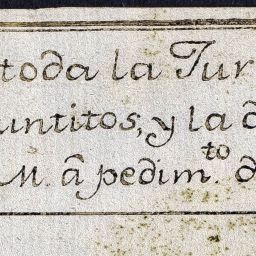 toda la Jur
untitos, y la d
M. â pedim.to d